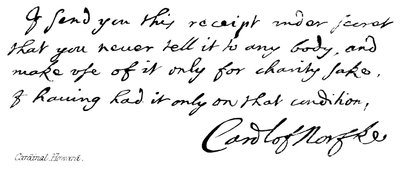 I send you this receipt under secret
that you never tell it to any body, and
make use of it only for charity sake,
I hauing had it only on that condition,
Cardl of Norfke
Cardinal Howard.